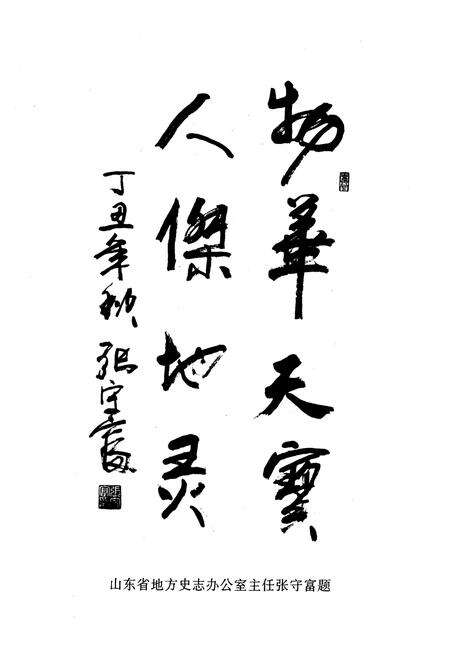 物華天寶
人傑地灵
丁丑年秋 张守富
山东省地方史志办公室主任张守富题